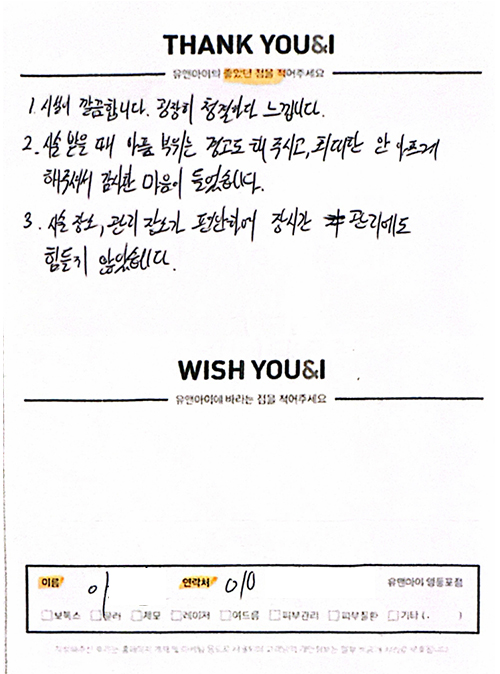 THANK YOU&I
유앤아이의 좋았던 점을 적어주세요
1. 시설이 깔끔합니다. 굉장히 청결하다 느낍니다.
2. 시술 받을 때 아픔 부위는 경고도 해 주시고, 최대한 안 아프게
해주셔서 감사한 마음이 들었습니다.
3. 시술 장소, 관리 장소가 편안하여 장시간 관리에도
힘들지 않았습니다.
WISH YOU&I
유앤아이에 바라는 점을 적어주세요
이름 이 연락처 010 유앤아이 영등포점
보톡스 필러 제모 레이저 여드름 피부관리 피부질환 기타 ( . )